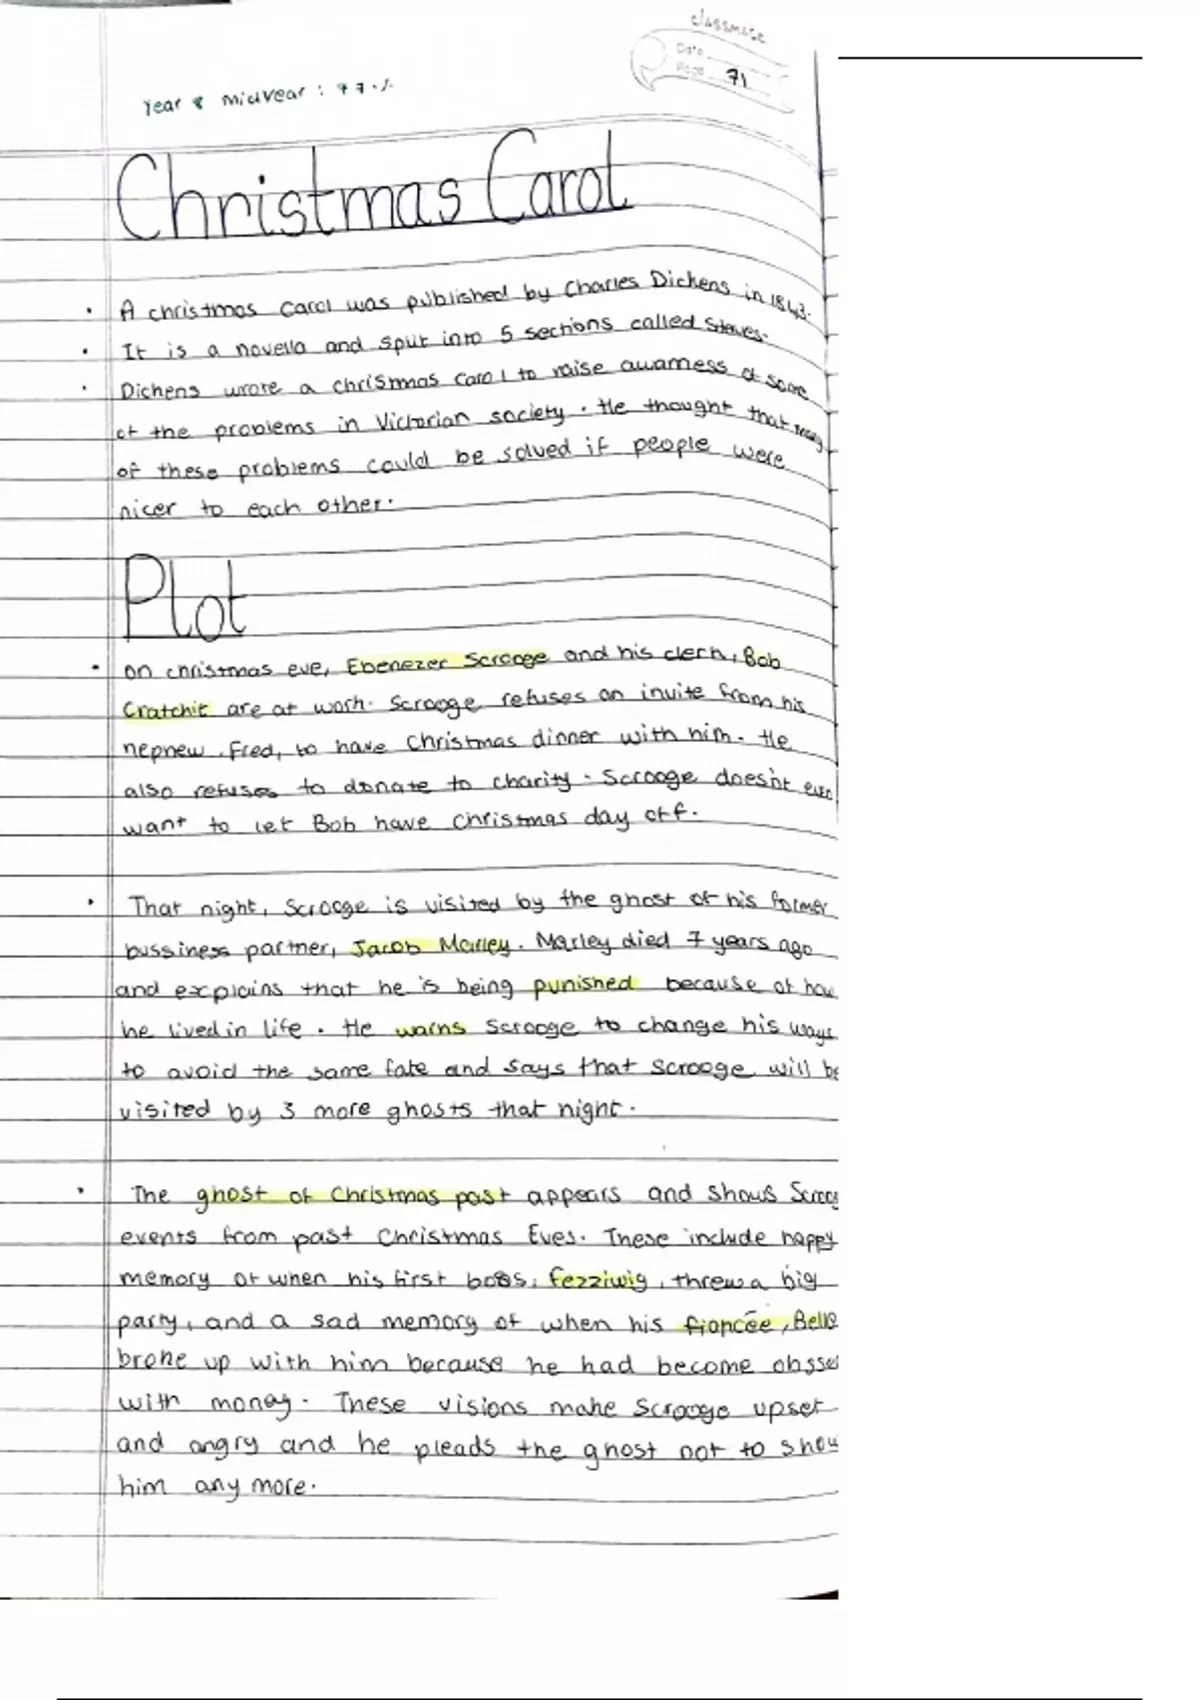 classmate
Date
Page 71
Year 8 midyear : 77.%
Christmas Carol
• A christmas Carol was published by Charles Dickens in 1843.
• It is a novella and split into 5 sections called staves.
• Dickens wrote a christmas carol to raise awarness of some
of the problems in Victorian society. He thought that many
of these problems could be solved if people were
nicer to each other.
Plot
• On christmas eve, Ebenezer Scrooge and his clerk, Bob
Cratchit are at work. Scrooge refuses an invite from his
nephew, Fred, to have Christmas dinner with him. He
also refuses to donate to charity. Scrooge doesn't even
want to let Bob have Christmas day off.
• That night, Scrooge is visited by the ghost of his former
bussiness partner, Jacob Marley. Marley died 7 years ago
and explains that he is being punished because of how
he lived in life. He warns Scrooge to change his ways
to avoid the same fate and says that Scrooge will be
visited by 3 more ghosts that night.
• The ghost of Christmas past appears and shows Scroog
events from past Christmas Eves. These include happy
memory of when his first boss, fezziwig, threw a big
party, and a sad memory of when his fiancée, Belle
broke up with him because he had become obsse
with money. These visions make Scrooge upset
and angry and he pleads the ghost not to show
him any more.